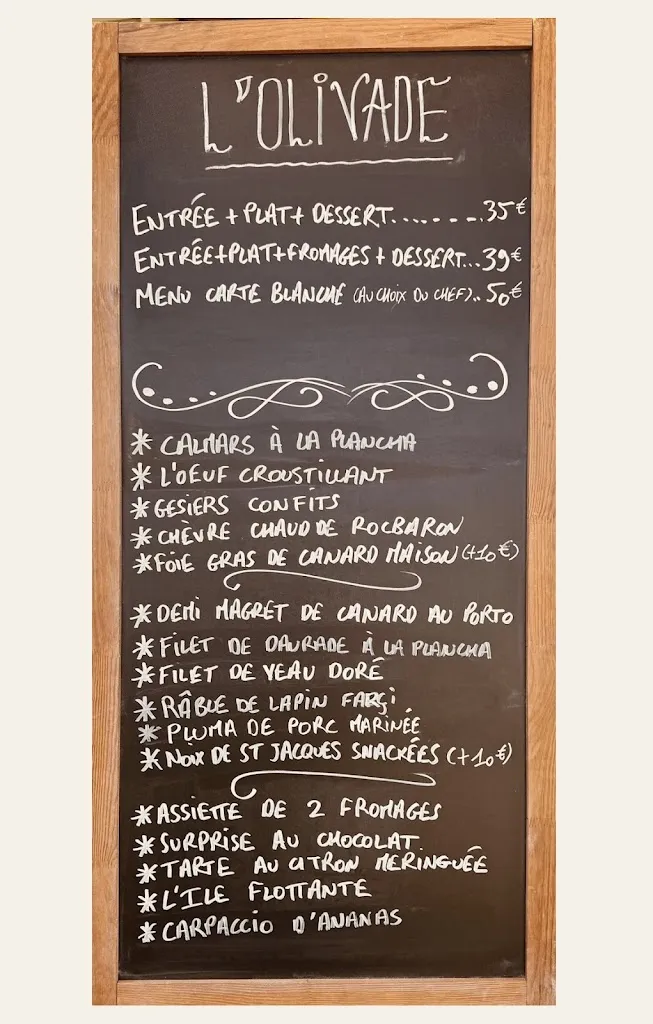 L'OLIVADE
ENTRÉE + PLAT + DESSERT.......35€
ENTRÉE+PLAT+FROMAGES + DESSERT...39€
MENU CARTE BLANCHE (AU CHOIX DU CHEF)..50€
* CALMARS À LA PLANCHA
* L'OEUF CROUSTILLANT
* GESIERS CONFITS
* CHÈVRE CHAUD DE ROCBARON
* FOIE GRAS DE CANARD MAISON (+10€)
* DEMI MAGRET DE CANARD AU PORTO
* FILET DE DAURADE À LA PLANCHA
* FILET DE VEAU DORÉ
* RÂBLE DE LAPIN FARÇI
* PLUMA DE PORC MARINÉE
* NOIX DE ST JACQUES SNACKÉES (+10€)
* ASSIETTE DE 2 FROMAGES
* SURPRISE AU CHOCOLAT
* TARTE AU CITRON MERINGUÉE
* L'ILE FLOTTANTE
* CARPACCIO D'ANANAS